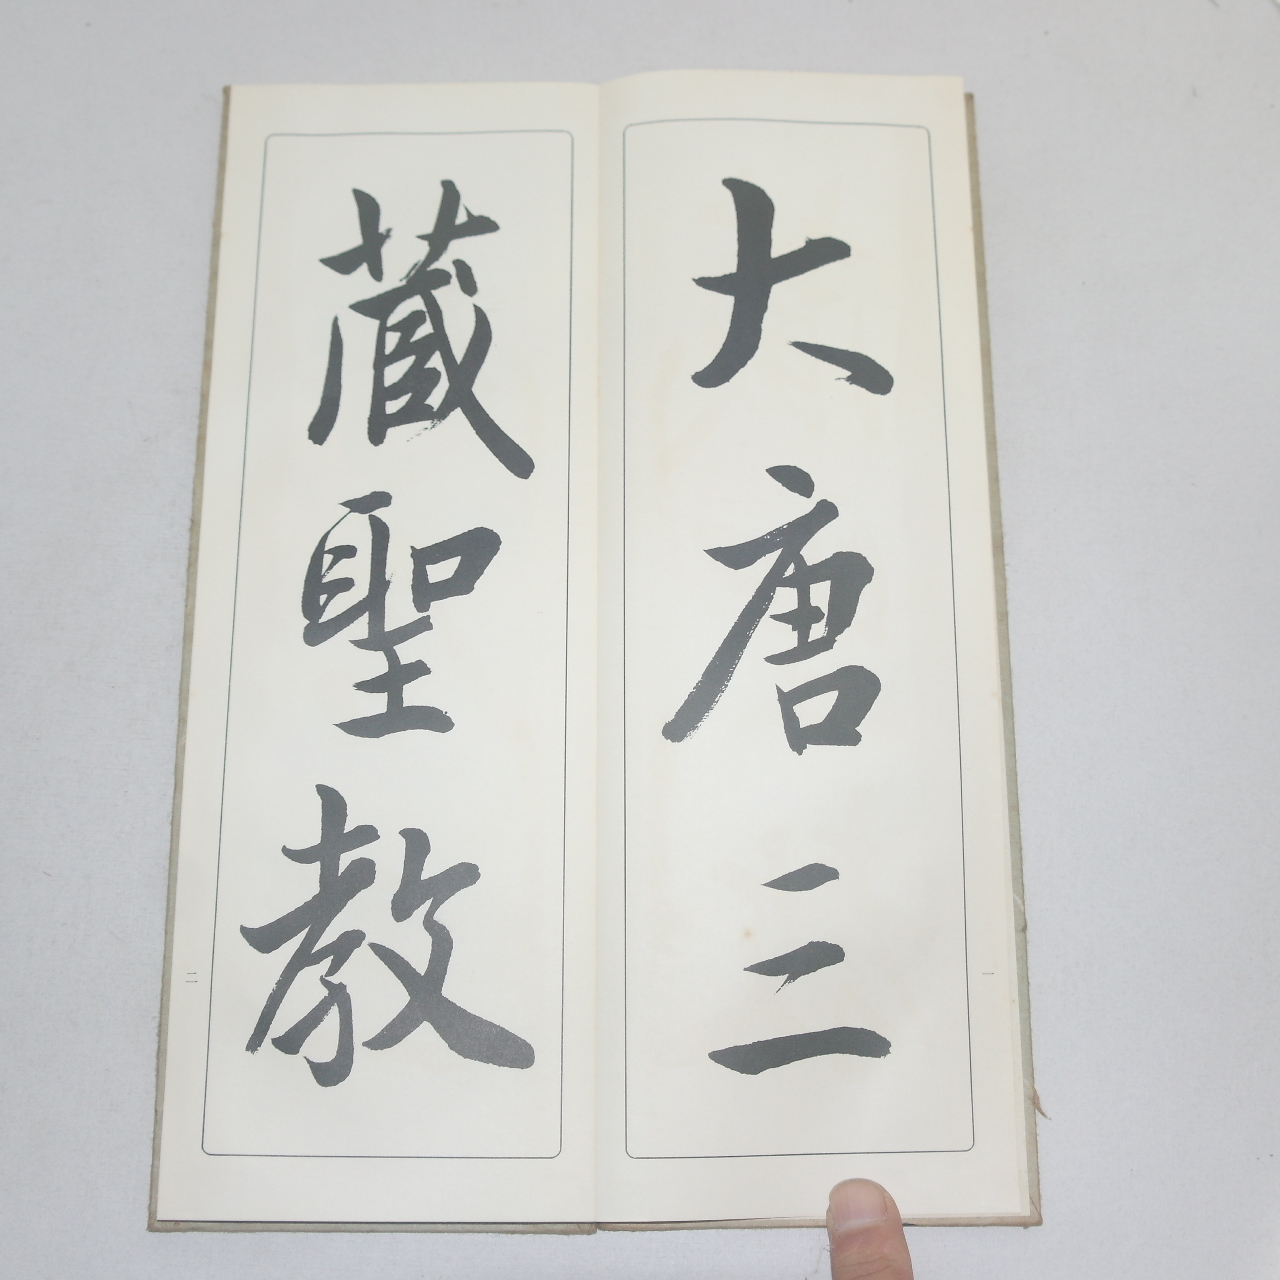 大唐三
藏聖教
一
二